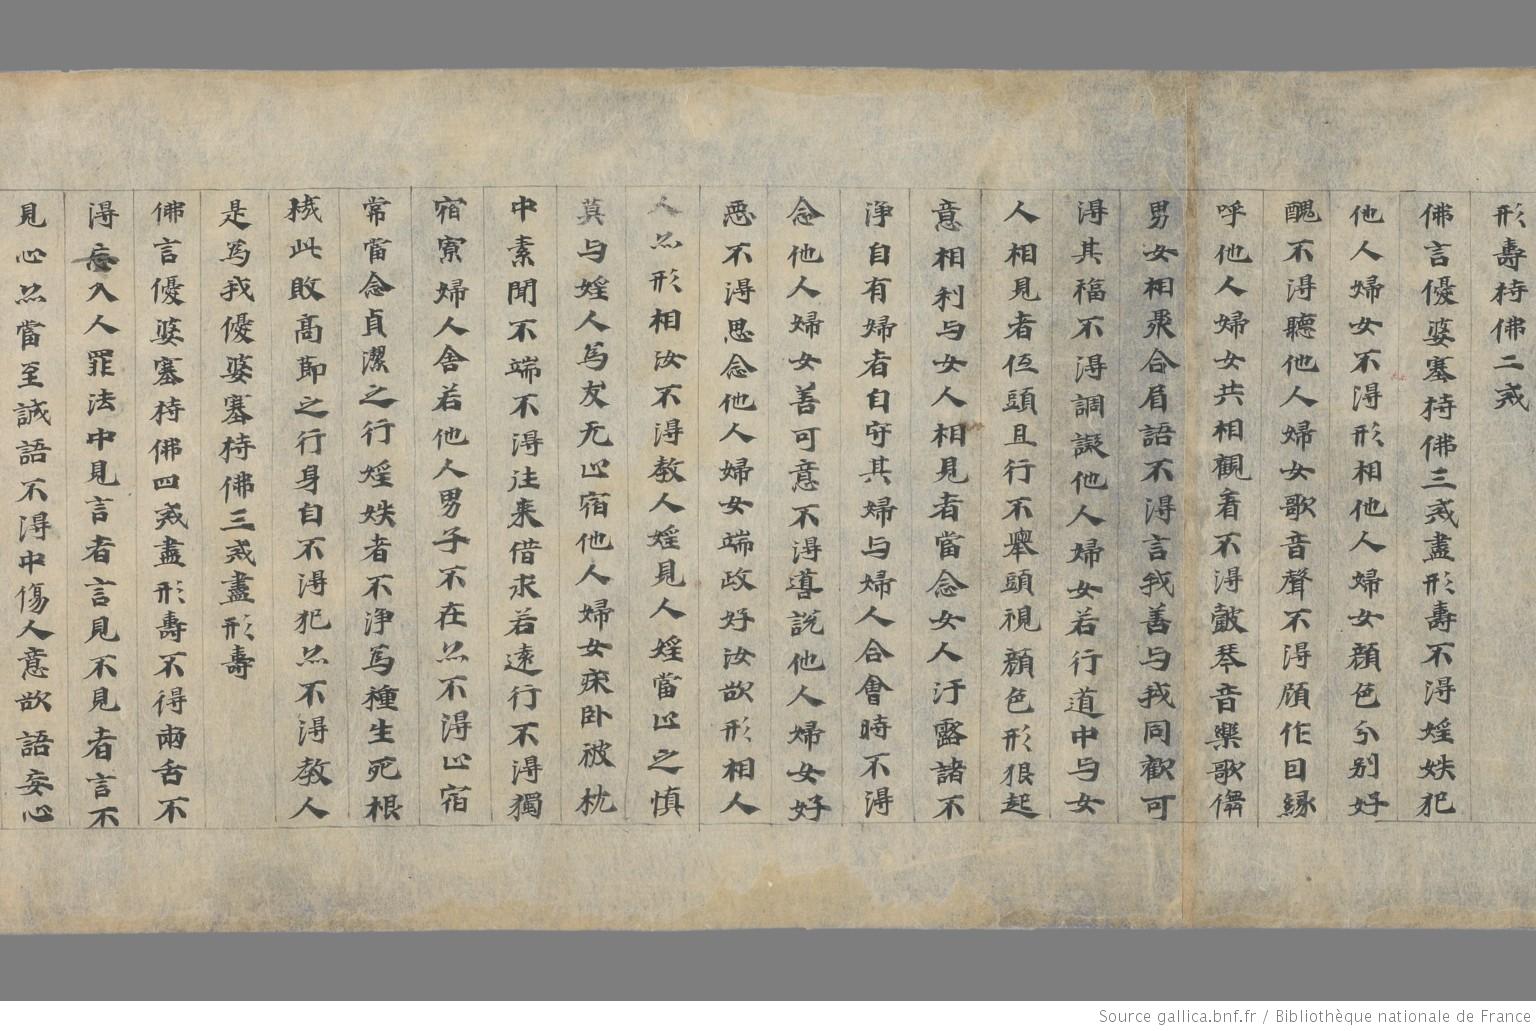 形壽持佛二戒
佛言優婆塞持佛三戒盡形壽不得婬妷犯
他人婦女不得形相他人婦女顏色分別好
醜不得聽他人婦女歌音聲不得頋作因緣
呼他人婦女共相觀看不得皷琴音樂歌儛
男女相聚合眉語不得言我善与我同歡可
得其福不得調譺他人婦女若行道中与女
人相見者伍頭且行不舉頭視顏色形狠起
意相利与女人相見者當念女人汙露諸不
淨自有婦者自守其婦与婦人合會時不得
念他人婦女善可意不得導說他人婦女好
惡不得思念他人婦女端政好汝欲形相人
人亦形相汝不得教人婬見人婬當止之慎
莫与婬人為友无止宿他人婦女床卧被枕
中素聞不端不得往来借求若遠行不得獨
宿寮婦人舍若他人男子不在亦不得止宿
常當念貞潔之行婬妷者不淨為種生死根
栰此敗高節之行身自不得犯亦不得教人
是為我優婆塞持佛三戒盡形壽
佛言優婆塞持佛四戒盡形壽不得兩舌不
得忘入人罪法中見言者言見不見者言不
見心亦當至誠語不得中傷人意欲語妄心
Source gallica.bnf.fr / Bibliothèque nationale de France